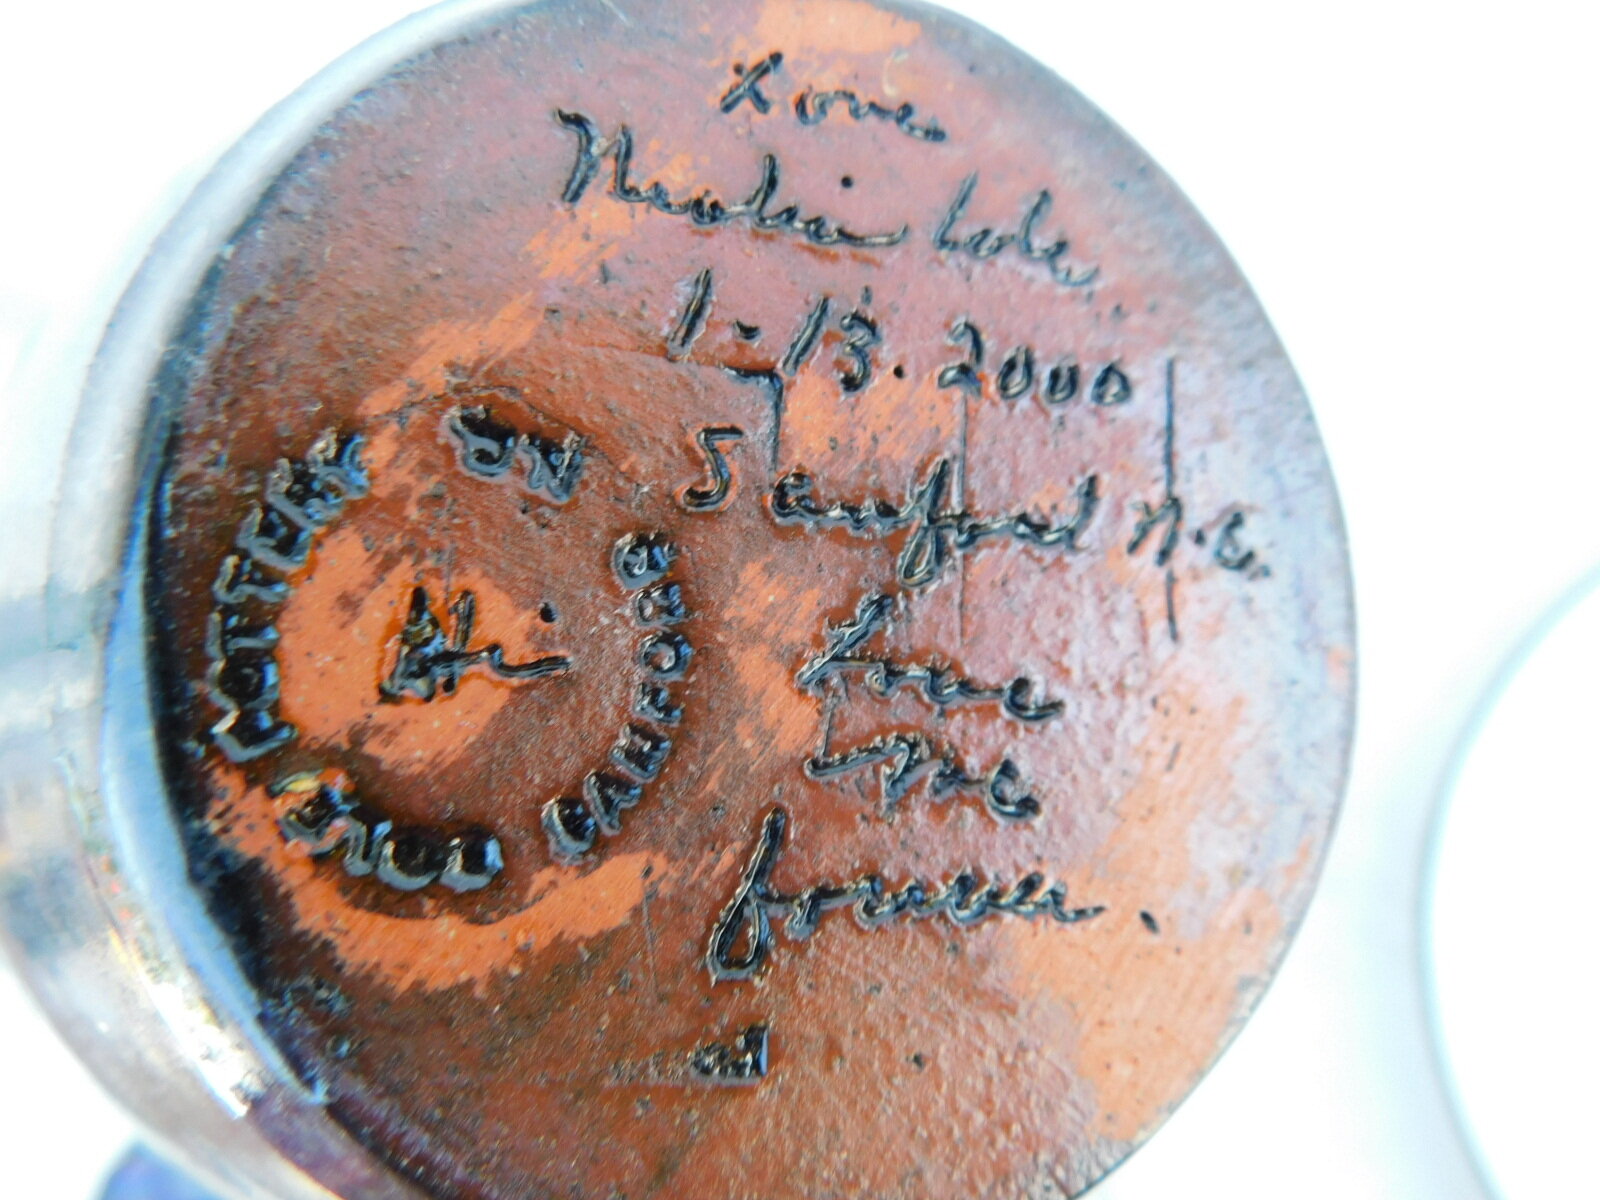 Love
Neolia Cole
1-13.2000
Sanford N.C.
Love
me
forever.
Hi
COLE
POTTERY
ON
SANFORD